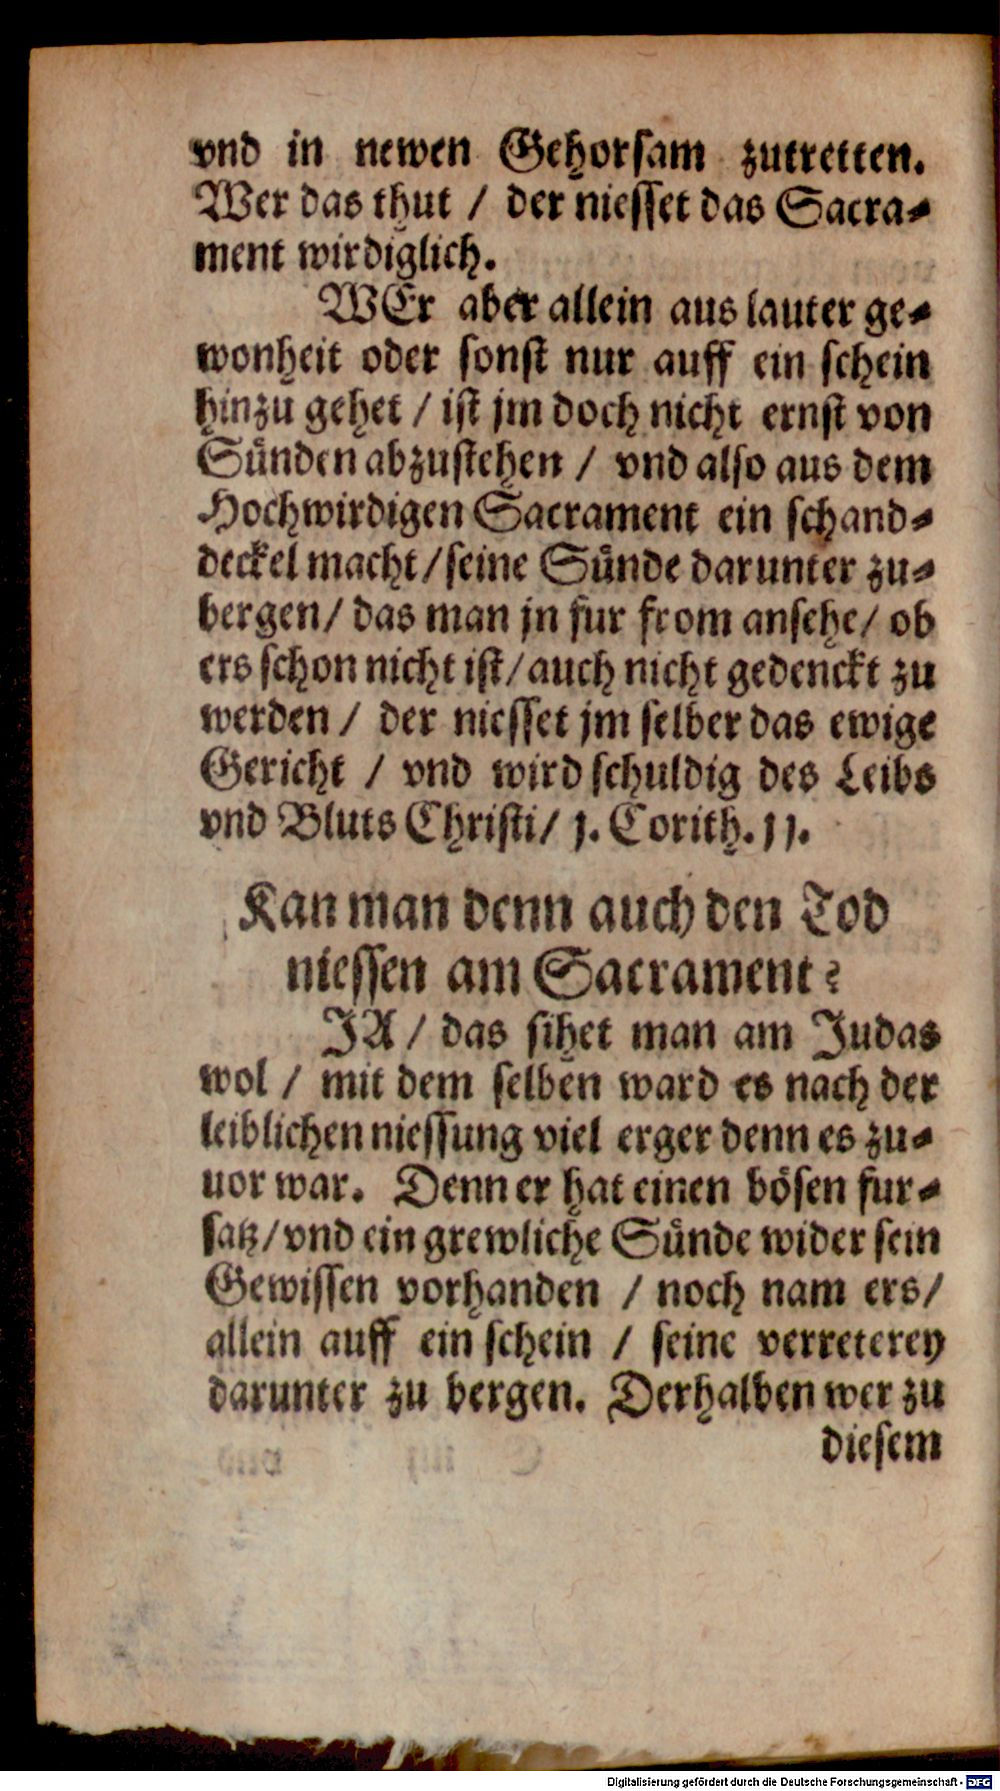 vnd in newen Gehorsam zutretten.
Wer das thut / der niesset das Sacra-
ment wirdiglich.
WEr aber allein aus lauter ge-
wonheit oder sonst nur auff ein schein
hinzu gehet / ist jm doch nicht ernst von
Sünden abzustehen / vnd also aus dem
Hochwirdigen Sacrament ein schand-
deckel macht / seine Sünde darunter zu-
bergen / das man jn fur from ansehe / ob
ers schon nicht ist / auch nicht gedenckt zu
werden / der niesset jm selber das ewige
Gericht / vnd wird schuldig des Leibs
vnd Bluts Christi / 1. Corith. 11.
Kan man denn auch den Tod
niessen am Sacrament?
JA / das sihet man am Judas
wol / mit dem selben ward es nach der
leiblichen niessung viel erger denn es zu-
uor war. Denn er hat einen bösen fur-
satz / vnd ein grewliche Sünde wider sein
Gewissen vorhanden / noch nam ers /
allein auff ein schein / seine verreterey
darunter zu bergen. Derhalben wer zu
diesem
Digitalisierung gefördert durch die Deutsche Forschungsgemeinschaft - DFG